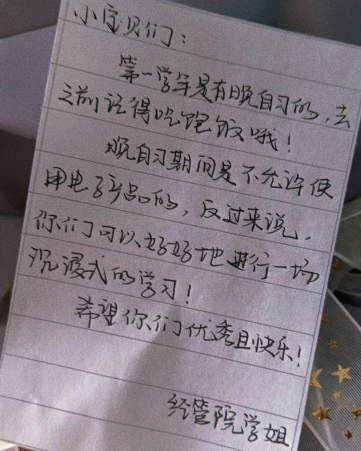 小宝贝们：
第一学年是有晚自习的，去
之前记得吃饱饭哦！
晚自习期间是不允许使
用电子产品的，反过来说，
你们可以好好地进行一场
沉浸式的学习！
希望你们优秀且快乐！
经管院学姐